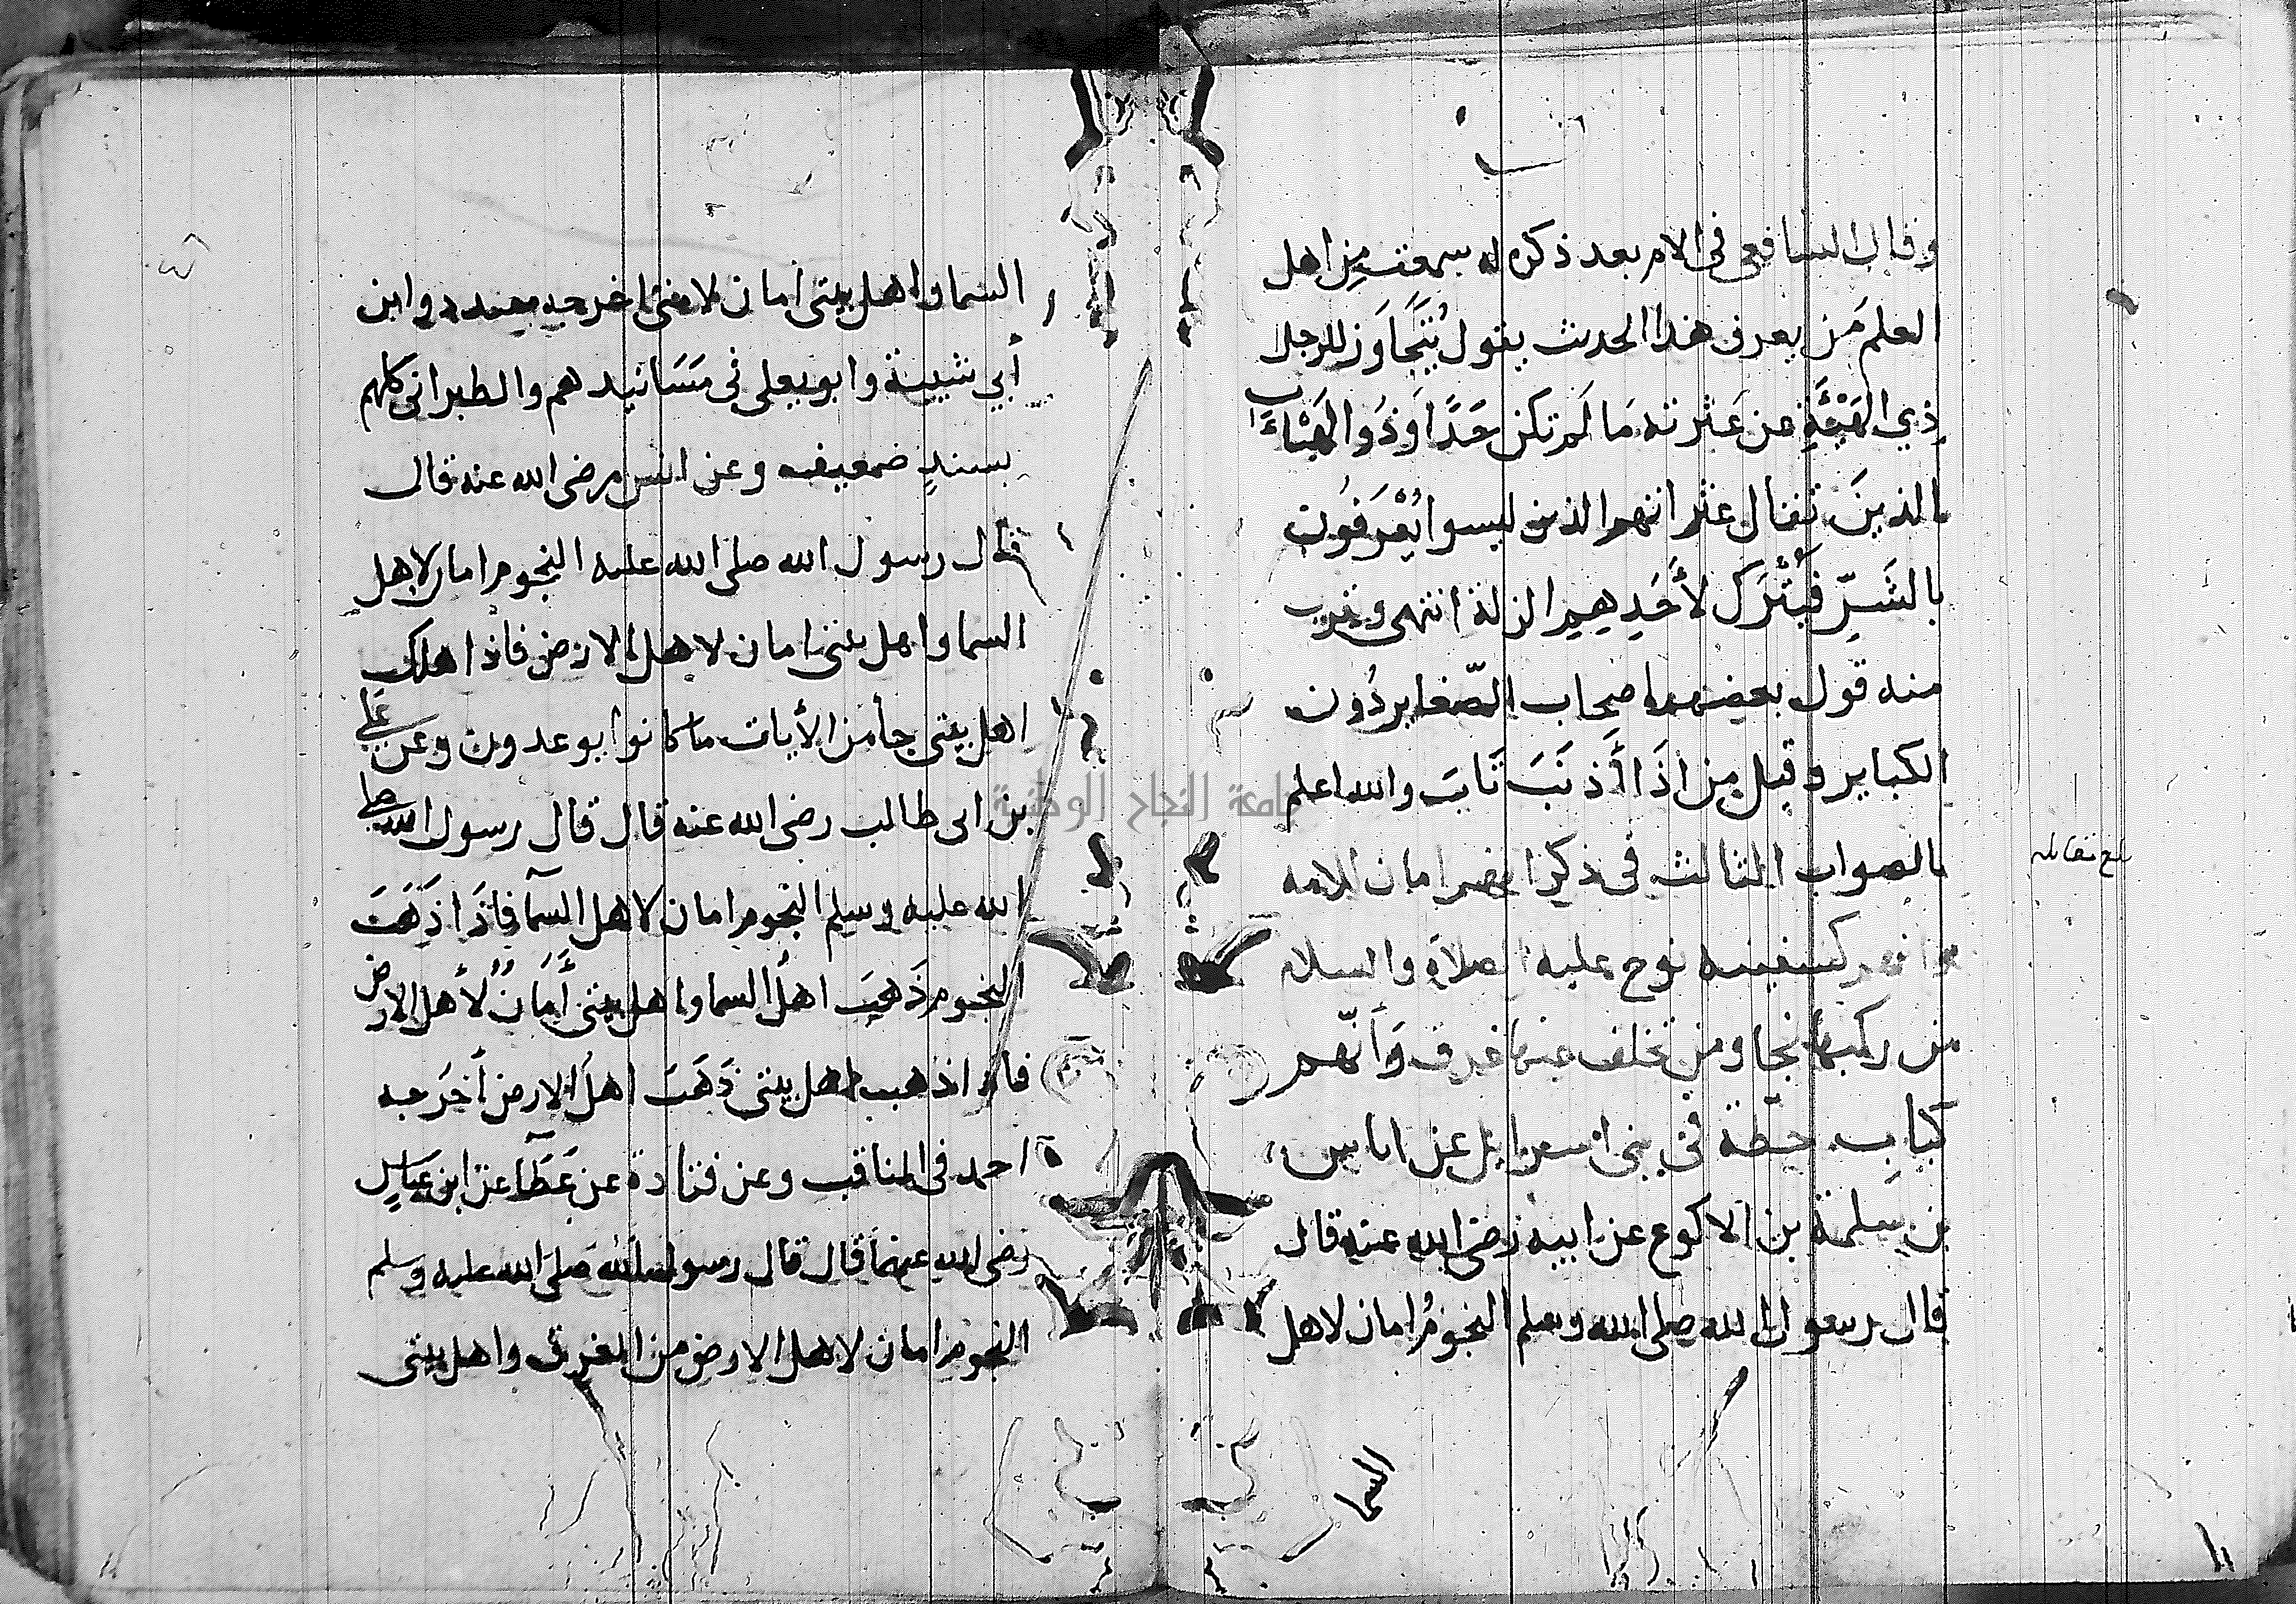 وقال الشافعي في الام بعد ذكره له سمعت من اهل
العلم مَن يعرف هذا الحديث يقول يُتَجَاوَز للرجل
ذِي الهَيْئَةِ عن عَثرته مَا لَم تكن حَدًّا وَذَوُوا الهَيْئَات
الذينَ تقال عثراتهم الذين ليسوا يُعْرَفُون
بالشَرِّ فَيُتْرَكُ لأَحَدِهِم الزلة انتهى وقريب
منه قول بعضهم اصحاب الصّغاير دُون
الكباير وقيل مِن اذَا أَذنَبَ تَابَ والله اعلم
بالصواب الثالث في ذكر انهم امان الامه
وانهم كسفينه نوح عليه الصلاة والسلام
من ركبها نجا ومن تخلف عنها غرق وَأَنّهم
كباب حِطّة في بني اسرايل عن اياس
بن سلمة بن الاكوع عن ابيه رضى الله عنه قال
قال رسول الله صلى الله وسلم النجومُ امان لاهل
السما
بلغ مقابله
السما واهل بيتى امان لامتى اخرجه مسدد وابن
أبي شيبة وابو يعلى في مَسَانيدهم والطبرانى كلهم
بسندٍ ضعيف وعن انس رضى الله عنه قال
قال رسول الله صلى الله عليه النجوم امان لاهل
السما واهل بيتى امان لاهل الارض فاذا هلك
اهل بيتى جأ من الأيات ما كانوا يوعدون وعن عَلي
بن ابى طالب رضى الله عنه قال قال رسول الله صلى
الله عليه وسلم النجوم امان لاهل السمآ فاذَا ذَهَبَت
النجوم ذَهَبَ اهل السما واهل بيتى أَمَانٌ لأهل الارض
فاذا ذهب اهل بيتى ذَهَبَ اهلُ الارض أخرَجه
احمد فى المناقب وعن قتادة عن عَطَآ عن ابن عَباسٍ
رضى الله عنهما قال قال رسول الله صَلى الله عليه وسلم
النجوم أمان لاهل الارض من الغرق واهل بيتى
جامعة النجاح الوطنية